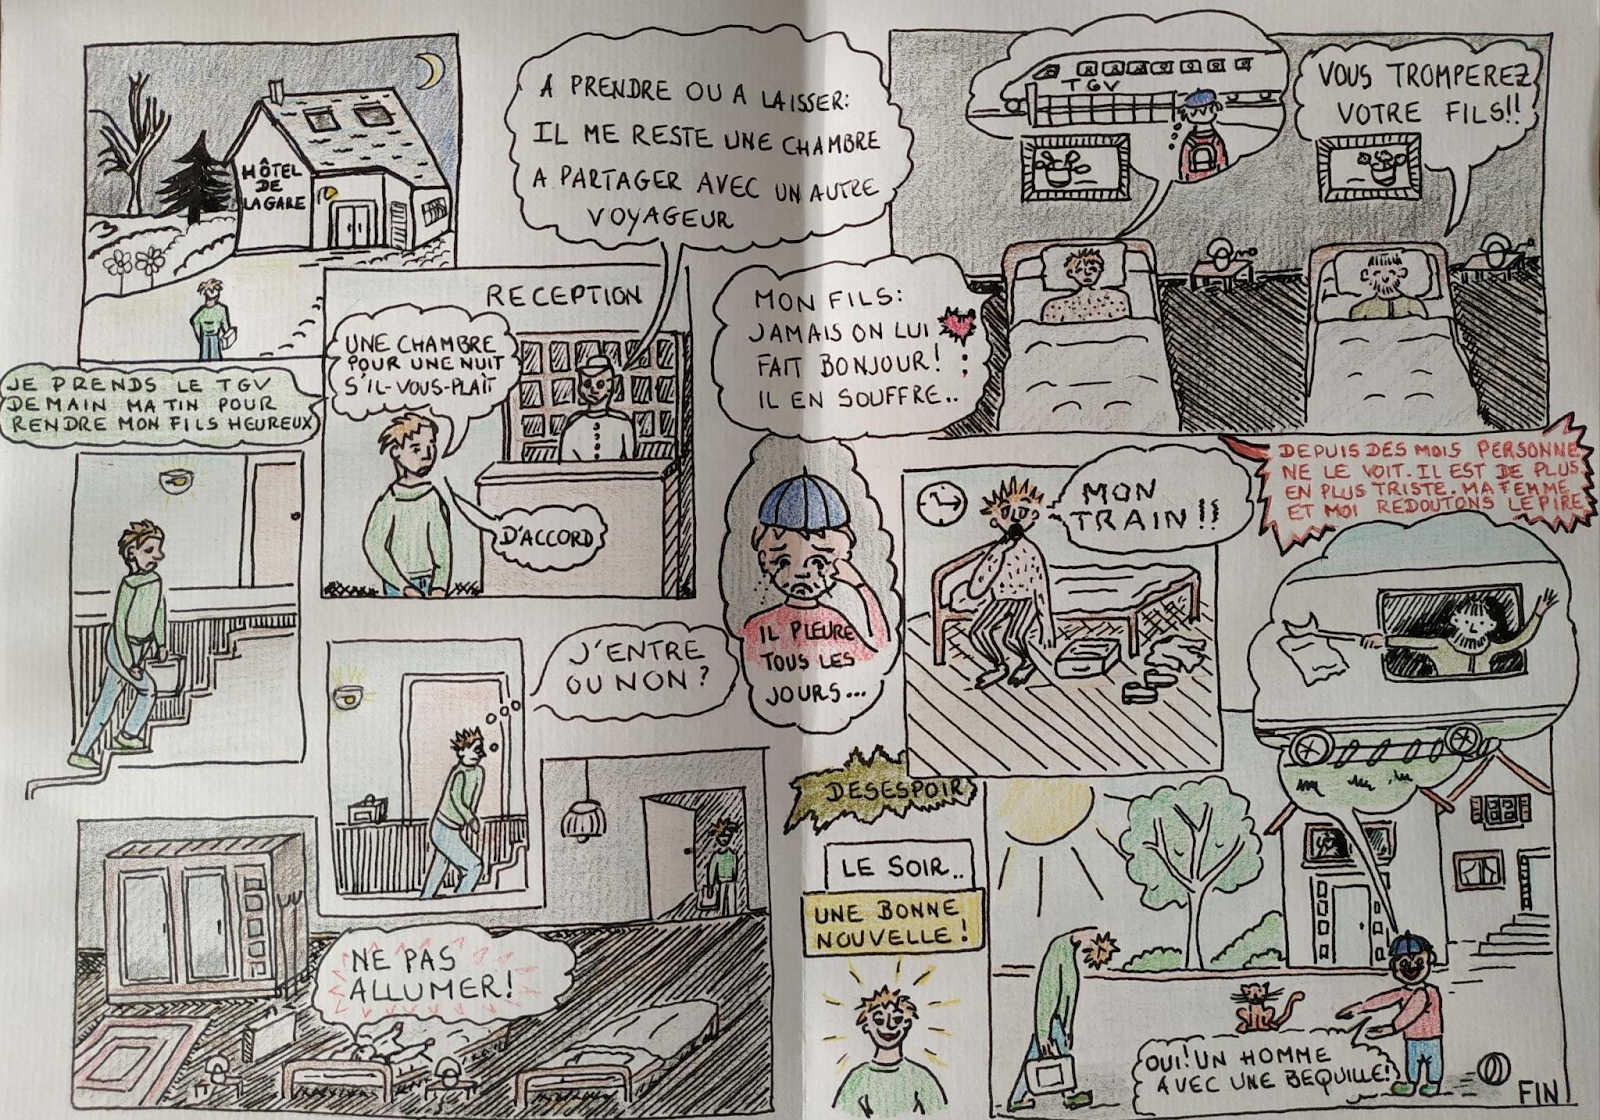 HÔTEL
DE
LA GARE
JE PRENDS LE TGV
DEMAIN MATIN POUR
RENDRE MON FILS HEUREUX
RECEPTION
UNE CHAMBRE
POUR UNE NUIT
S'IL-VOUS-PLAÎT
A PRENDRE OU A LAISSER:
IL ME RESTE UNE CHAMBRE
A PARTAGER AVEC UN AUTRE
VOYAGEUR
D'ACCORD
J'ENTRE
OU NON?
NE PAS
ALLUMER!
TGV
VOUS TROMPEREZ
VOTRE FILS!!
MON FILS:
JAMAIS ON LUI
FAIT BONJOUR!
IL EN SOUFFRE..
DEPUIS DES MOIS PERSONNE
NE LE VOIT. IL EST DE PLUS
EN PLUS TRISTE. MA FEMME
ET MOI REDOUTONS LE PIRE
IL PLEURE
TOUS LES
JOURS...
MON
TRAIN!!
DESESPOIR
LE SOIR..
UNE BONNE
NOUVELLE!
OUI! UN HOMME
AVEC UNE BEQUILLE!
FIN!